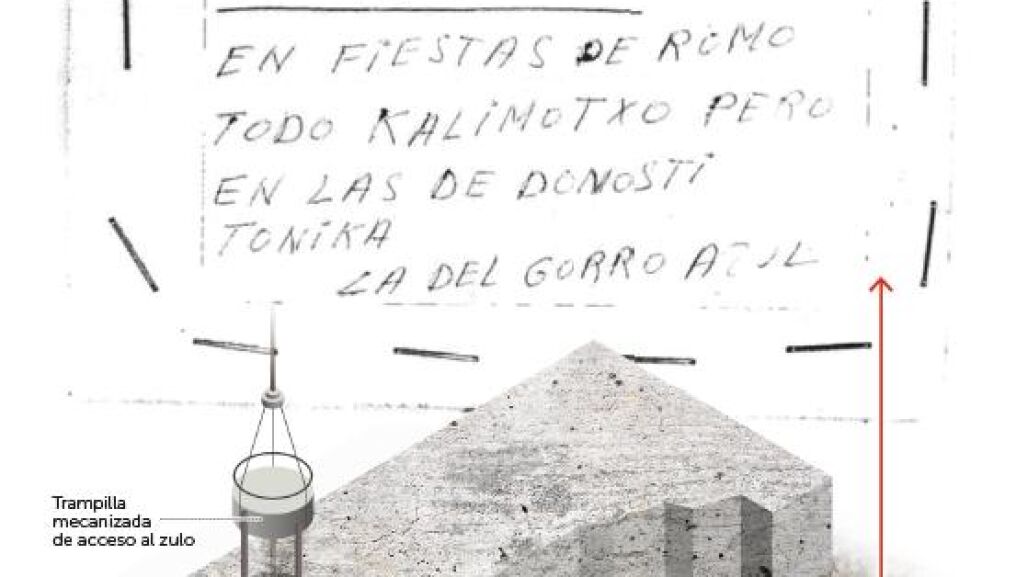 EN FiESTAS DE ROMO
TODO KALiMOTXO PERO
EN LAS DE DONOSTi
TONiKA
LA DEL GORRO AZUL
Trampilla
mecanizada
de acceso al zulo